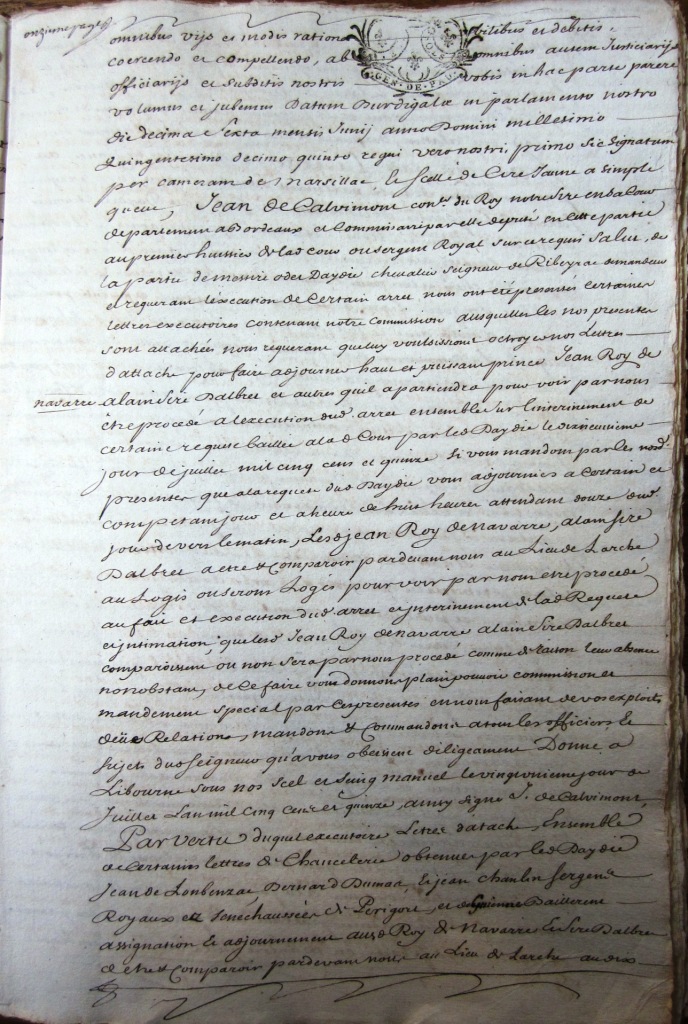 onzieme page
omnibus vijs et modis rationabilibus et debitis
coercendo et compellendo, ab omnibus autem Justiciarijs
officiarijs et subditis nostris vobis in hac parte parere
volumus et jubemus Datum Burdigalae in parlamento nostro
die decima sexta mensis Junij anno Domini millesimo
quingentesimo decimo quinto regni vero nostri primo sic signatum
per cameram de Marsillac, le scelle de Cire Jaune a simple
queue, Jean de Calvimont con.er du Roy notre sire en sa Cour
de parlement a Bordeaux et Commissaire par elle deputé en cette partie
au premier huissier de lad cour ou sergent Royal sur ce requis Salut, de
la partie de messire odet Daydie chevalier seigneur de Ribeyrac demandeur
et requerant l'execution de Certain arret nous ont été presentés certaines
lettres executoires contenant notre Commission ausquelles les nos presentes
sont attachées nous requerant que luy voulsissions octroyer nos Lettres
d'attache pour faire adjourner haut et puissant prince Jean Roy de
navarre alain Sire Dalbret et autres qu'il apartiendra pour voir par nous
être procedé a l'execution dud. arret ensemble sur l'interinement de
certaine requete baillée a lad Cour par led Daydie le
jour de juillet mil cinq cens et quinze Si vous mandons par les nosd.
presentes que a la requete dud Daydie vous adjournies a Certain et
competant jour et a heure de huit heures attendant douze dud.
jour devers le matin, Lesd jean Roy de Navarre, alain sire
Dalbret a etre & Comparoir pardevant nous au Lieu de Larche
au Logis ou serons Logés pour voir par nous etre procedé
au fait et execution dud. arret et interinement de lad Requete
et intimation que lesd Jean Roy de navarre alain Sire Dalbret
comparoissent ou non sera par nous procedé comme de raison leur absence
nonobstant, de Ce faire vous donnons plain pouvoir commission et
mandement special par Ces presentes en nous faisant de vos exploits
deüe Relation, mandons & Commandons a tous les officiers et
sujets dud seigneur qu'a vous obeissent diligeament Donné a
Libourne sous nos scel et seing manuel le vingt unieme jour de
Juillet Lan mil Cinq Cens et quinze, ainsy signé J. de Calvimont,
Par Vertu duquel executoire Lettres datache, Ensemble
de Certaines lettres de Chancelerie obtenues par led Daydie
Jean de Bernard Dumas, et jean sergens
Royaux et Senéchaussées de Perigort, et de Guienne Baillerent
assignation et adjournement ausd Roy de Navarre et Sire Dalbret
a etre & Comparoir pardevant nous au Lieu de Larche au dix